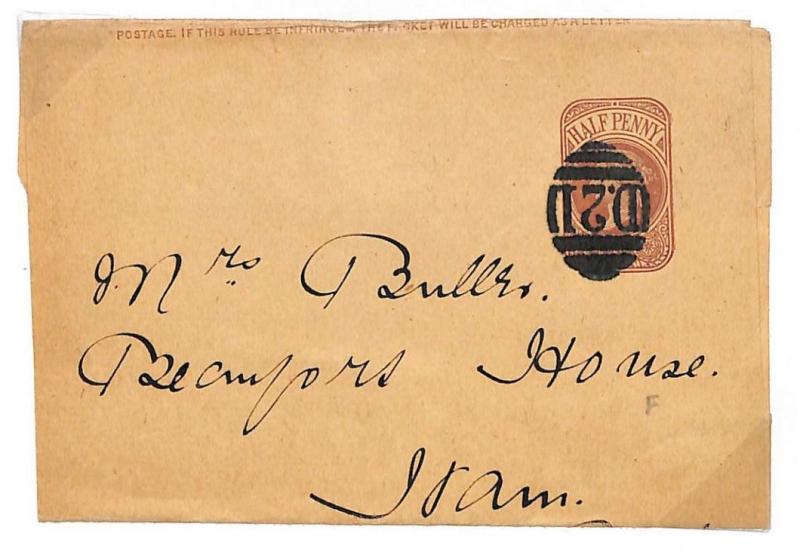 POSTAGE. IF THIS RULE BE INFRINGED, THE PACKET WILL BE CHARGED AS A LETTER
HALFPENNY
D.2.U
Mrs Buller.
Beaufort House.
Ham.
F